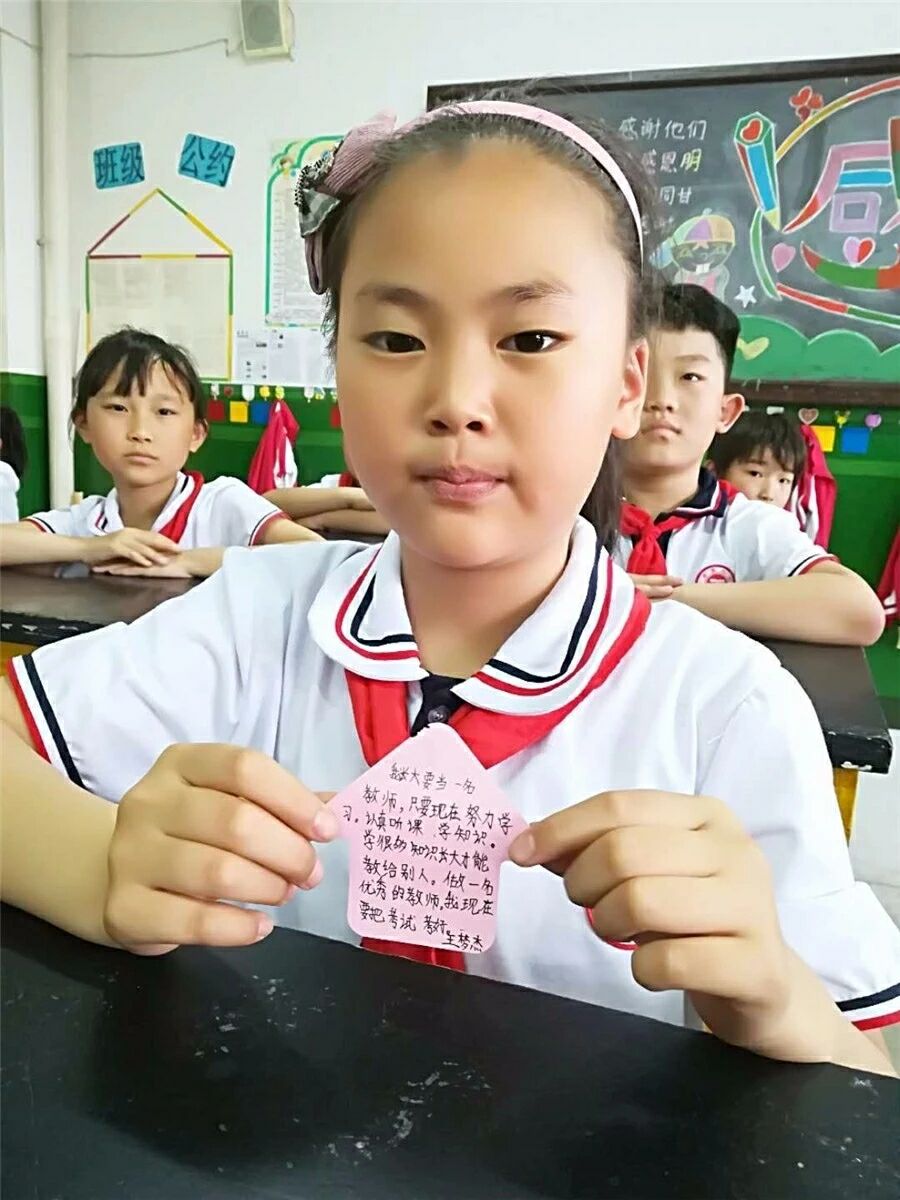 班级
公约
感谢他们
感恩明
同甘
感
我长大要当一名
教师，只要现在努力学
习。认真听课、学知识。
学很多知识长大才能
教给别人。做一名
优秀的教师。我现在
要把考试 考好。
王梦杰